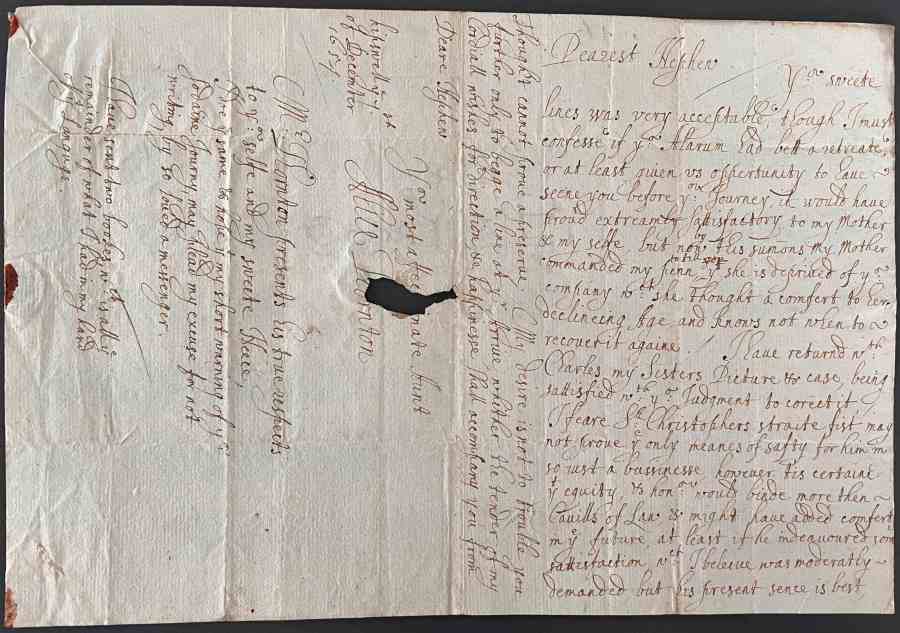 Dearest Nephew
Yor sweete
lines was very acceptable, though I must
confesse if yr Alarum had bett a retreate,
or at least given vs oppertunity to have
seene you before yor Journey, it would have
proud extreamly sattisfactory to my Mother
& my selfe, but now this sumons my Mother
commanded my penn yt she is deprived of yr
company wch she thought a comfort to her
declineing Age and knows not when to
recover it againe. I have returnd wth
Charles my Sisters Picture & case, being
sattisfied wth yr Judgment to corect it
I feare Sr Christophers straite fist may
not prove ye only meanes of safty for him in
so just a bussinesse however tis certaine
yt equity, & honor would binde more then
Cavills of Law & might have added comfort
my future, at least if he indeavoured som
sattisfaction, wch I beleive was moderatly
demanded but his present sence is best
My desire is not to trouble you
further only to begge a line at yr arrive whither the tender of my
Cordiall wishes for direction, & happinesse shall accompany you from
thought cannot prove a preserve
Deare Nephew
Yor most affectionate Aunt
Alice Thornton
hipswell ye
of December
1651
Mr Thornton presents his true respects
to yor selfe and my sweete Neece,
I give ye same & hope my short warning of yr
Sodaine Jurny may plead my excuse for not
writeing by so loud a messenger
I have sent two bookes wch is all ye
remainder of what I had in my hand
of yt Languge.